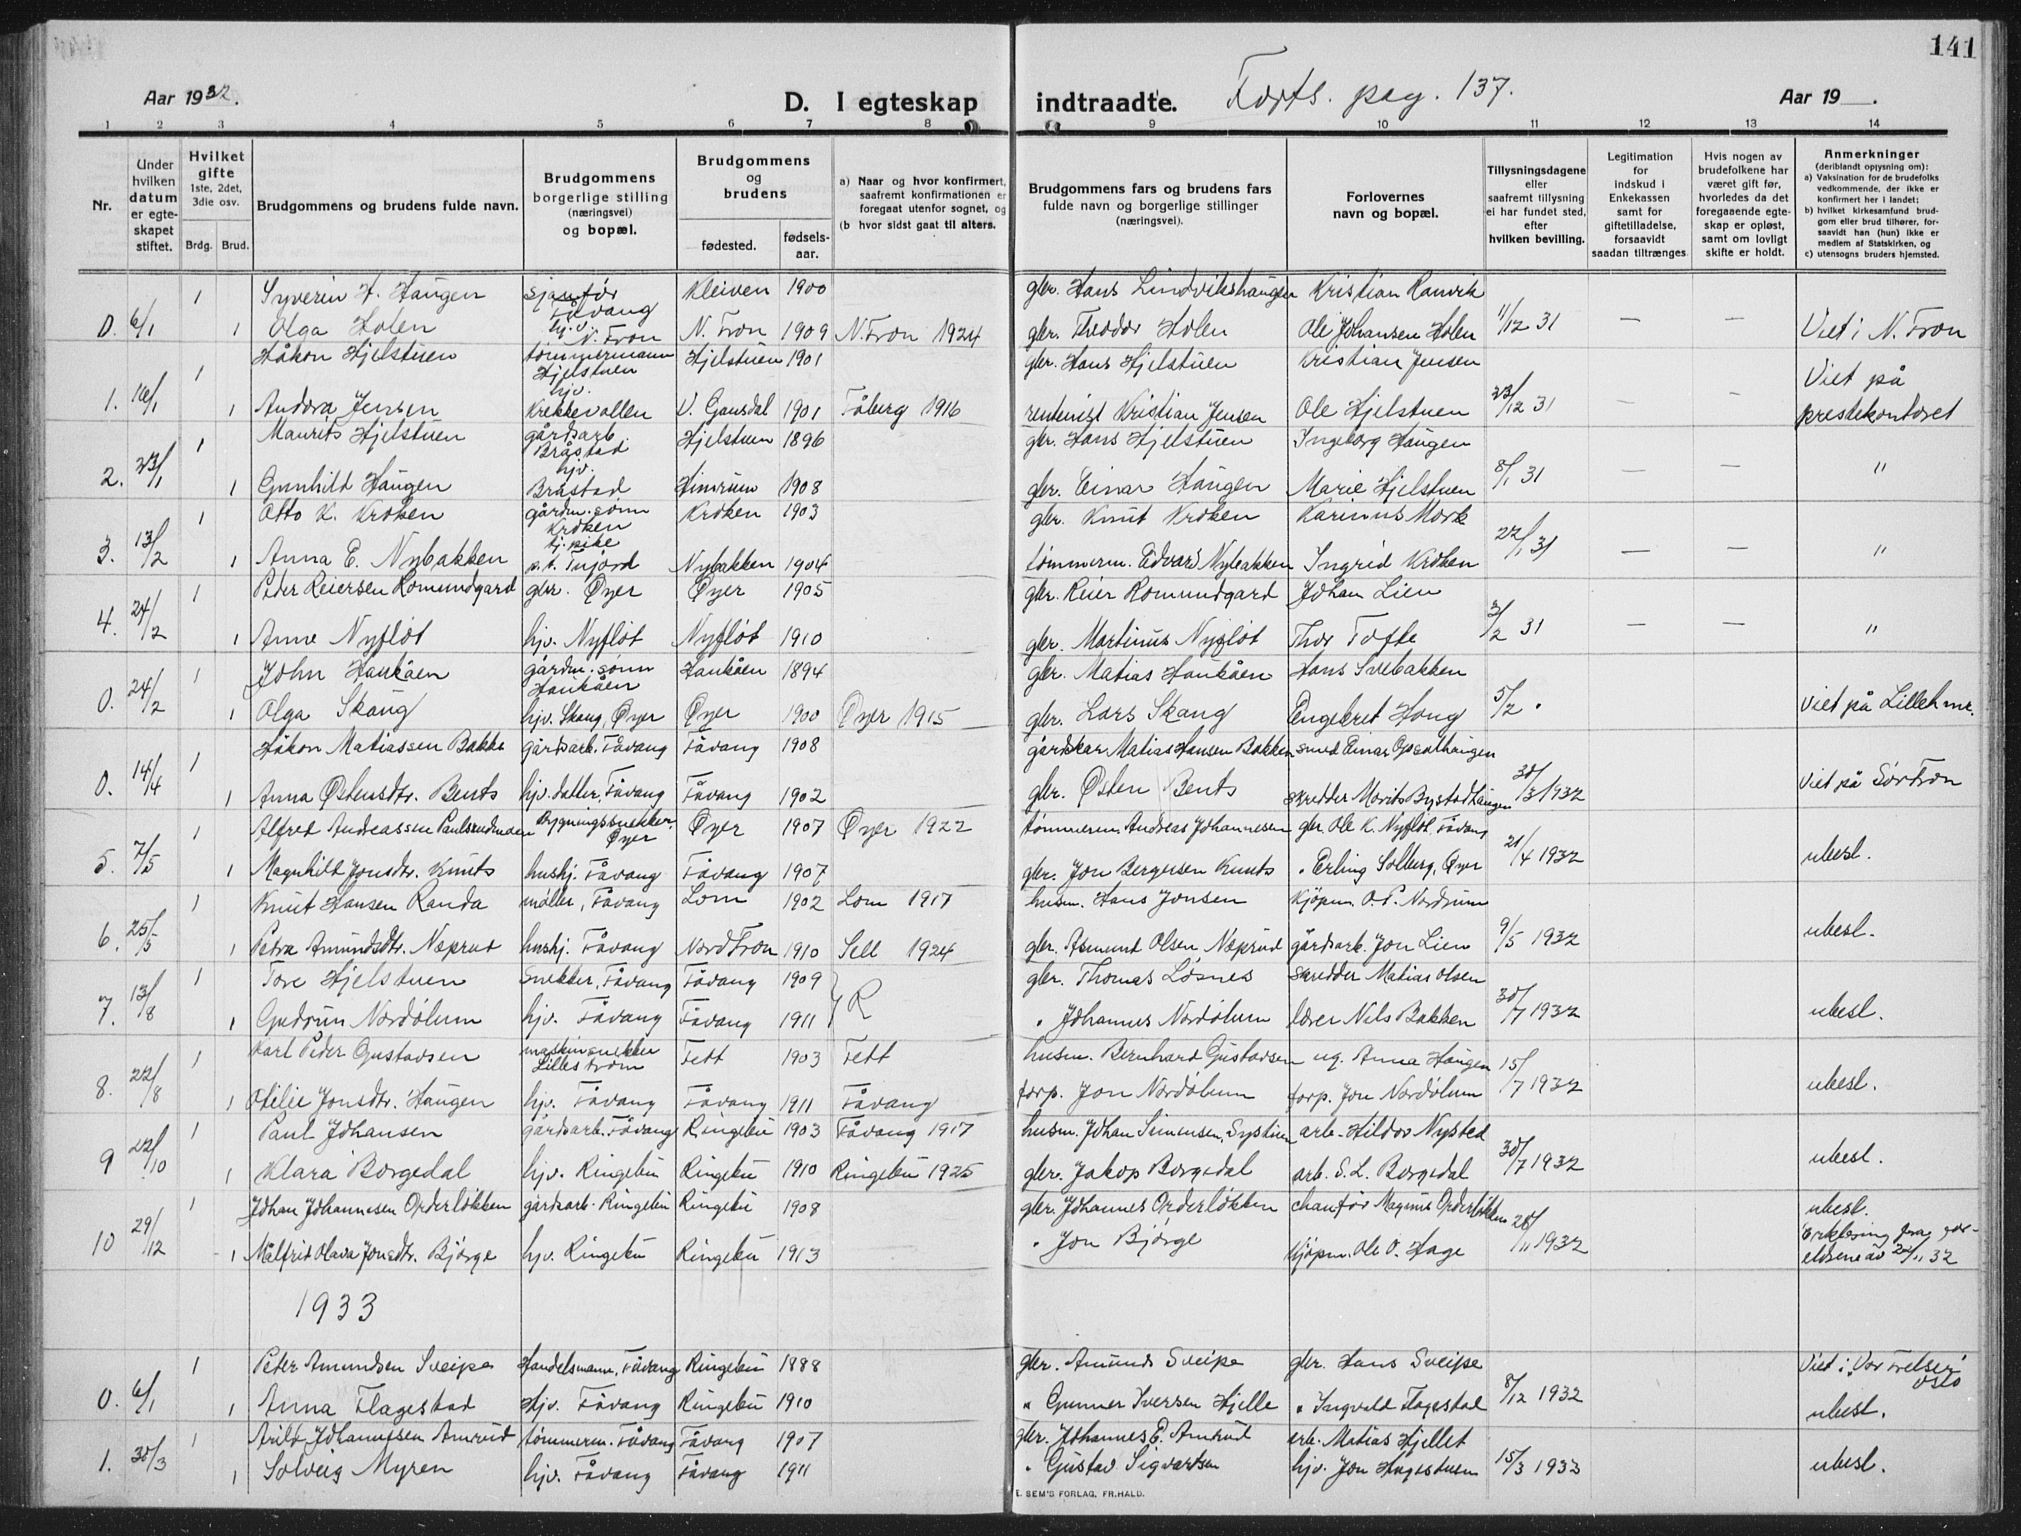 141
Aar 1932.
D. I egteskap indtraadte. Forts. pag. 137.
Aar 19 .
1 2 3 4 5 6 7 8 9 10 11 12 13 14
Nr.
Under hvilken datum er egteskapet stiftet.
Hvilket gifte 1ste, 2det, 3die osv.
Brdg. Brud.
Brudgommens og brudens fulde navn.
Brudgommens borgerlige stilling (næringsvei) og bopæl.
Brudgommens og brudens
fødested. fødselsaar.
a) Naar og hvor konfirmert, saafremt konfirmationen er foregaat utenfor sognet, og
(b hvor sidst gaat til alters.
Brudgommens fars og brudens fars fulde navn og borgerlige stillinger (næringsvei).
Forlovernes navn og bopæl.
Tillysningsdagene eller saafremt tillysning ei har fundet sted, efter hvilken bevilling.
Legitimation for indskud i Enkekassen samt for giftetilladelse, forsaavidt saadan tiltrænges
Hvis nogen av brudefolkene har været gift før, hvorledes da det foregaaende egteskap er opløst, samt om lovligt skifte er holdt.
Anmerkninger (deriblandt opjysning om):
a) Vaksination for de brudefolks vedkommende, der ikke er konfirmert her i landet;
b) hvilket kirkesamfund brudgom eller brud tilhører, forsaavidt han (hun) ikke er medlem af Statskirken, og
c) utensogns bruders hjemsted.
1 Syverin H. Haugen sjauför Fåvang Kleiven 1900 gbr. Hans Lindvikshaugen Kristian Ranvik
0. 6/1 1 Olga Holen hj.v. N. Fron N. Fron 1909 N. Fron 1924 gbr. Theodor Holen Ole Johansen Holen 11/12 31 — — Viet i N. Fron
1 Håkon Hjelstuen tømmermann Hjelstuen Hjelstuen 1901 gbr. Hans Hjelstuen Kristian Jensen
1. 16/1 1 Andora Jensen hjv. Krekkevollen V. Gausdal 1901 Fåberg 1916 rentenist Kristian Jensen Ole Hjelstuen 23/12 31 - - Viet på prestekontoret
1 Maurits Hjelstuen gårdsarb Bråstad Hjelstuen 1896 gbr. Hans Hjelstuen Ingeborg Haugen
2. 23/1 1 Gunhild Haugen hjv. Bråstad 1908 gbr. Einar Haugen Marie Hjelstuen 8/1 31 — — "
1 Otto K. Kroken gårdm. sønn Kroken Kroken 1903 gbr. Knut Kroken Karinus Mork
3. 13/2 1 Anna E. Nybakken tj. pike Nybakken 1904 tømmerm. Edvard Nybakken Ingrid Kroken 22/1 31 — — "
1 Peder Reiersen Romundgard gbr. Øyer Øyer 1905 gbr. Reier Romundgard Johan Lien
4. 24/2 1 Anne Nyfløt hjv. Nyfløt Nyfløt 1910 gbr. Martinus Nyfløt Thor Tofte 3/2 31 — — "
1 John Haukåen gårdm. sønn Haukåen Haukåen 1894 gbr. Matias Haukåen Hans Svebakken
0. 24/2 1 Olga Skaug hjv. Skaug, Øyer Øyer 1900 Øyer 1915 gbr. Lars Skaug Engebret Hong 5/2 Viet på Lilleh.mr.
1 Håkon Matiassen Bakke gårdsarb. Fåvang Fåvang 1908 gårdskar Matias Hansen Bakken smed Einar Opsalhaugen
0. 14/4 1 Anna Østensdtr. Bents hjv. datter, Fåvang Fåvang 1902 gbr. Østen Bents skredder Morits Bystadhaugen 30/3 1932 Viet på Sør Fron
1 Alfred Andreassen Paulsrudmoen Bygningssnekker, Øyer Øyer 1907 Øyer 1922 tømmerm. Andreas Johannesen gbr. Ole K. Nyfløt, Fåvang
5. 7/5 1 Magnhild Jonsdtr. Knuts hushj. Fåvang Fåvang 1907 gbr. Jon Bergersen Knuts " Erling Solberg, Øyer 21/4 1932 ubesl.
1 Knut Hansen Randa møller, Fåvang Lom 1902 Lom 1917 husm. Hans Jonsen Kjøpm. O. P. Nordrum
6. 25/5 1 Petra Amundsdtr. Neprud hushj. Fåvang Nord Fron 1910 Sell 1924 gbr. Asmund Olsen Neprud gårdsarb. Jon Lien 9/5 1932 ubesl.
1 Tore Hjelstuen Snekker, Fåvang Fåvang 1909 gbr. Thomas Løsnes skredder Matias Olsen
7. 13/8 1 Gudrun Nordølum hjv. Fåvang Fåvang 1911 R " Johannes Nordølum lærer Nils Bakken 30/7 1932 ubesl.
1 Karl Peder Gustavsen maskinsnekker Lillestrøm Fett 1903 Fett husm. Bernhard Gustavsen ug. Anna Haugen
8. 22/8 1 Otilie Jonsdtr. Haugen hjv. Fåvang Fåvang 1911 Fåvang forp. Jon Nordølum forp. Jon Nordølum 15/7 1932 ubesl.
1 Paul Johansen gårdsarb. Fåvang Ringebu 1903 Fåvang 1917 husm. Johan Simensen, Systuen arb. Hildor Nysted
9 22/10 1 Klara Borgedal hjv. Ringebu Ringebu 1910 Ringebu 1925 gbr. Jakop Borgedal arb. S. L. Borgedal 30/7 1932 ubesl.
1 Johan Johannesen Orderløkken gårdsarb. Ringebu Ringebu 1908 gbr. Johannes Orderløkken chauför Magnus Orderløkken
10 29/12 1 Målfrid Olava Jonsdtr. Bjørge hjv. Ringebu Ringebu 1913 " Jon Bjørge Kjøpm. Ole O. Hage 28/11 1932 ubesl. Erklæring fra foreldrene av 28/11 32
1933
1 Peter Amundsen Sveipe Handelsmann, Fåvang Ringebu 1888 gbr. Amund Sveipe gbr. Hans Sveipe
0. 6/1 1 Anna Flagestad Hjv. Fåvang Ringebu 1910 " Gunner Iversen Hjelle " Ingvald Flagestad 8/12 1932 Viet i Vor Frelser i Oslo ubesl.
1 Arild Johannesen Amrud tømmerm. Fåvang Fåvang 1907 gbr. Johannes E. Amrud arb. Matias Hjellet
1. 30/3 1 Solveig Myren hjv. Fåvang Fåvang 1911 " Gustav Sigvartsen hjv. Jon Hagestuen 15/3 1933 ubesl.
E. SEM'S FORLAG, FR.HALD.